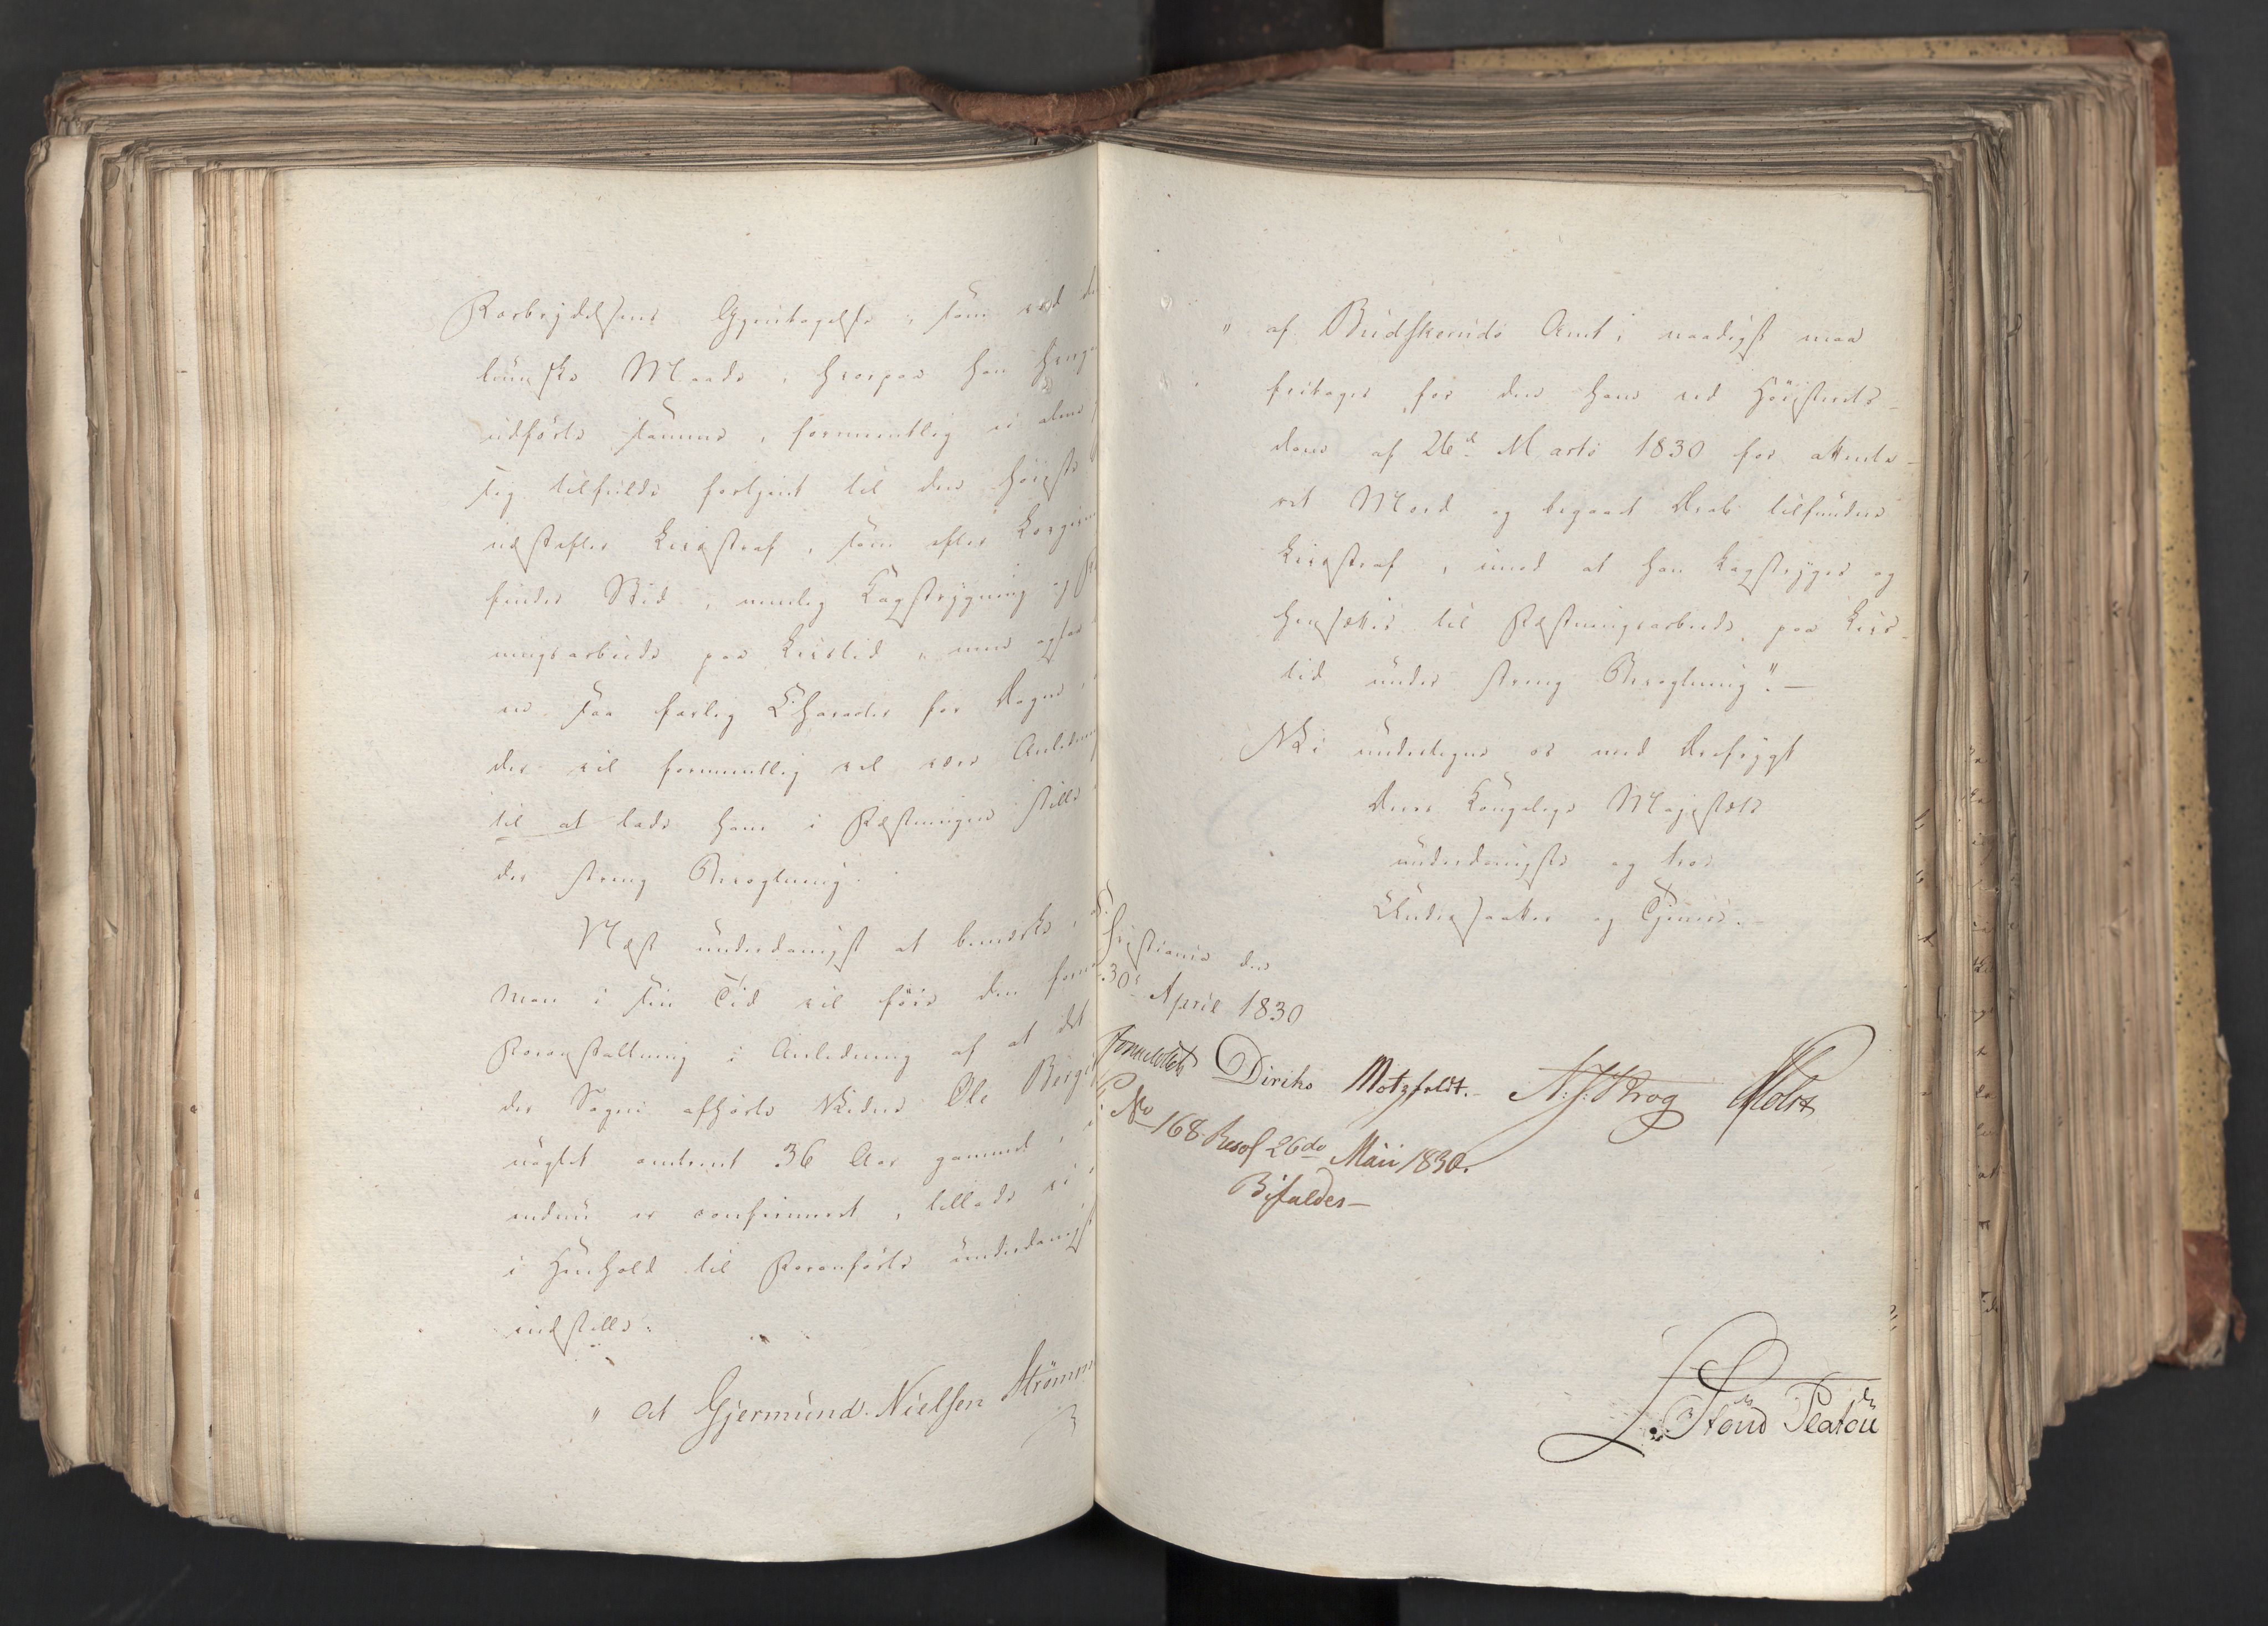 Forbrydelsens Gjentagelse, som ved
lumske Maade, hvorpaa han
udførte samme, formeentlig
sig tilfulde fortjent til den høieste
næstefter Livsstraf, som efter
finder Sted, nemlig Kagstrygning og
ningsarbeide paa Livstid, men ogsaa
en saa farlig Character for Dagen
der vil formeentlig vel være Anledning
til at lade ham i Fæstningen stille
der streng Bevogtning.
Næst underdanigst at bemærke,
man i sin Tid vil føie den
Foranstaltning i Anledning af at det
der Sagen afhørte Vidne Ole
uagtet omtrent 36 Aar gammel,
endnu er confirmeret, tillade vi
i Henhold til Foranførte underdanigst
indstille:
" at Gjermund Nielsen Strømm
" af Budskeruds Amt, naadigst maa
fritages for den ham ved Høiesterets-
dom af 26de Marts 1830 for attente-
ret Mord og begaaet Drab tilfundne
Livsstraf, imod at han kagstryges og
hensættes til Fæstningsarbeide paa Livs-
tid under streng Bevogtning". —
Vi undertegne os med Ærefrygt
Deres Kongelige Majestæts
underdanigste og troe
Undersaatter og Tjenere.
Christiania den
30te April 1830
Diriks Motzfeldt. Krog Holst
No 168. Resol 26de Maii 1830.
Bifaldes—
L. Stoud Platou